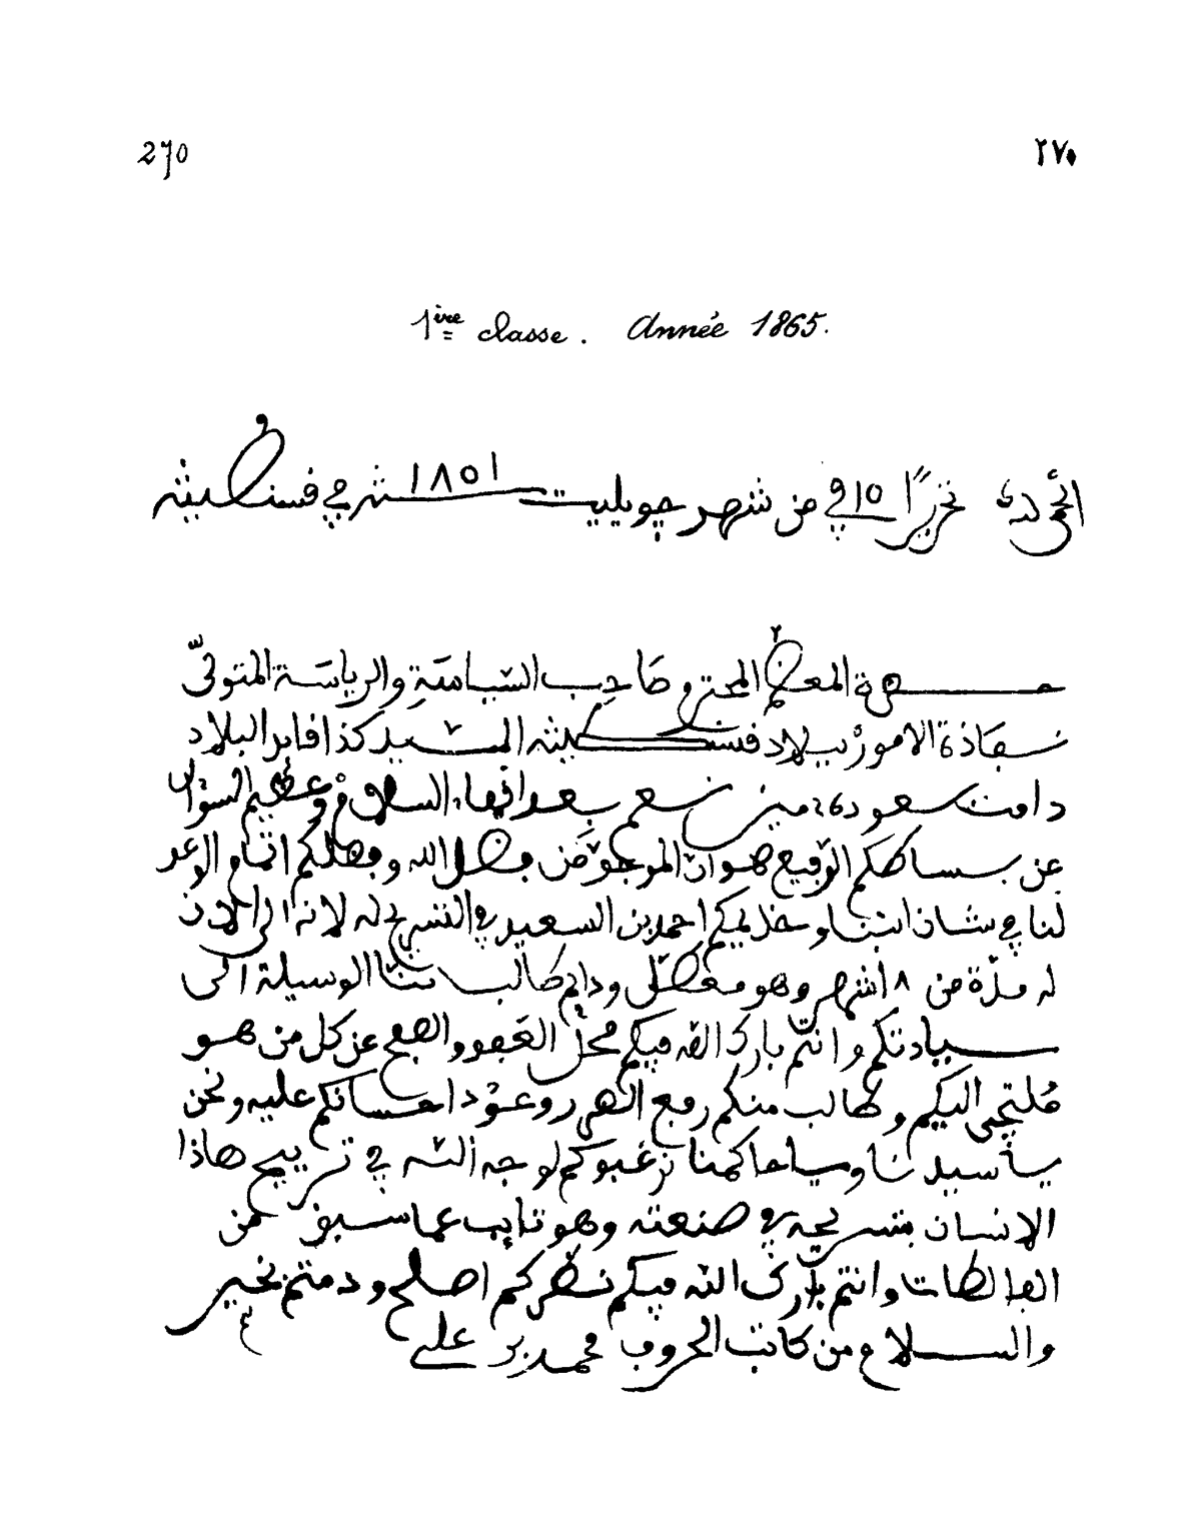 270 ٢٧٠
1ère classe. Année 1865.
الحمد لله تحريرًا في ١٥ من شهر جويليت سنة ١٨٥١ في قسنطينة
حضرة المعظم المحترم صَاحِب السّيَاسَةِ والرياسَة المتولّي
نفاذة الامور ببلاد قسنطينة السيد كذا قايد البلاد
دامت سعود
عن بساطكم الرّفيع هو انّ المرجوّ من فضل الله وفضلكم اتمام الوعد
لنا في شان ابننا وخديمكم احمد بن السعيد في التسريح له لانه الى الان
له مدّة من ٨ اشهر وهو معطّل ودايم طالب منّا الوسيلة الى
سيادتكم وانتم بارك الله فيكم محلّ العَفو والصفح عن كل من هو
مُلتجى اليكم وطالب منكم رفع الضرر وعوّد احسانكم عليه ونحن
يا سيدنا ويا حاكمنا نرغبوكم لوجه الله في تربيح هاذا
الانسان بتسريحه في صنعته وهو تايب عما سبق من
الغالطات وانتم بارك الله فيكم نظركم اصلح ودمتم بخير
والسلام من كاتب الحروف محمد بن علي